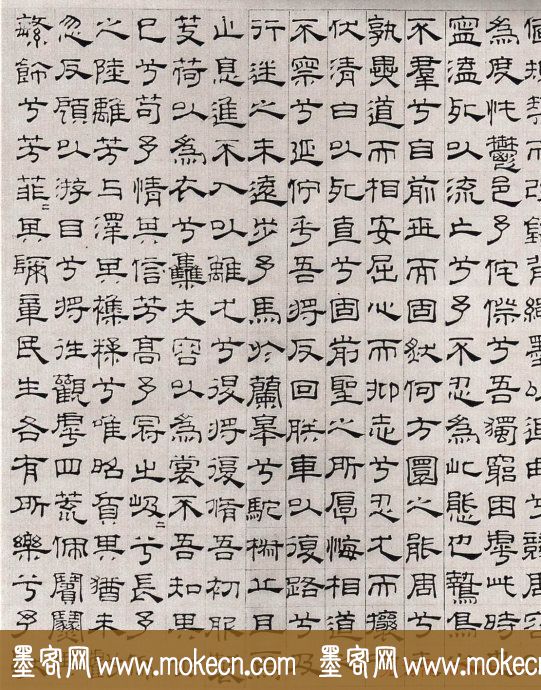 而改錯背繩墨以追曲兮競周容
為度忳鬱邑予侘傺兮吾獨窮困乎此時
寧溘死以流亡兮予不忍為此態也鷙鳥
不羣兮自前世而固然何方圜之能周兮
孰異道而相安屈心而抑志兮忍尤而攘
伏清白以死直兮固前聖之所厚悔相道
不察兮延佇乎吾將反回朕車以復路兮及
行迷之未遠步予馬於蘭皋兮馳椒丘且焉
止息進不入以離尤兮退將復脩吾初服
芰荷以為衣兮集夫容以為裳不吾知其
已兮苟予情其信芳高予冠之岌〻兮長予
之陸離芳與澤其雜糅兮唯昭質其猶未
忽反顧以游目兮將往觀乎四荒佩繽紛
繁飾兮芳菲〻其彌章民生各有所樂兮予
墨客网 www.mokecn.com 墨客网 www.mokecn.com